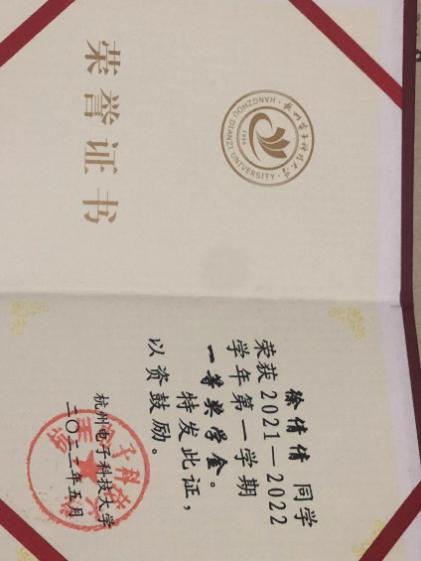 荣誉证书
杭州电子科技大学
HANGZHOU DIANZI UNIVERSITY
1956
徐倩倩 同学
荣获2021—2022
学年第一学期
一等奖学金。
特发此证，
以资鼓励。
杭州电子科技大学
二〇二二年五月